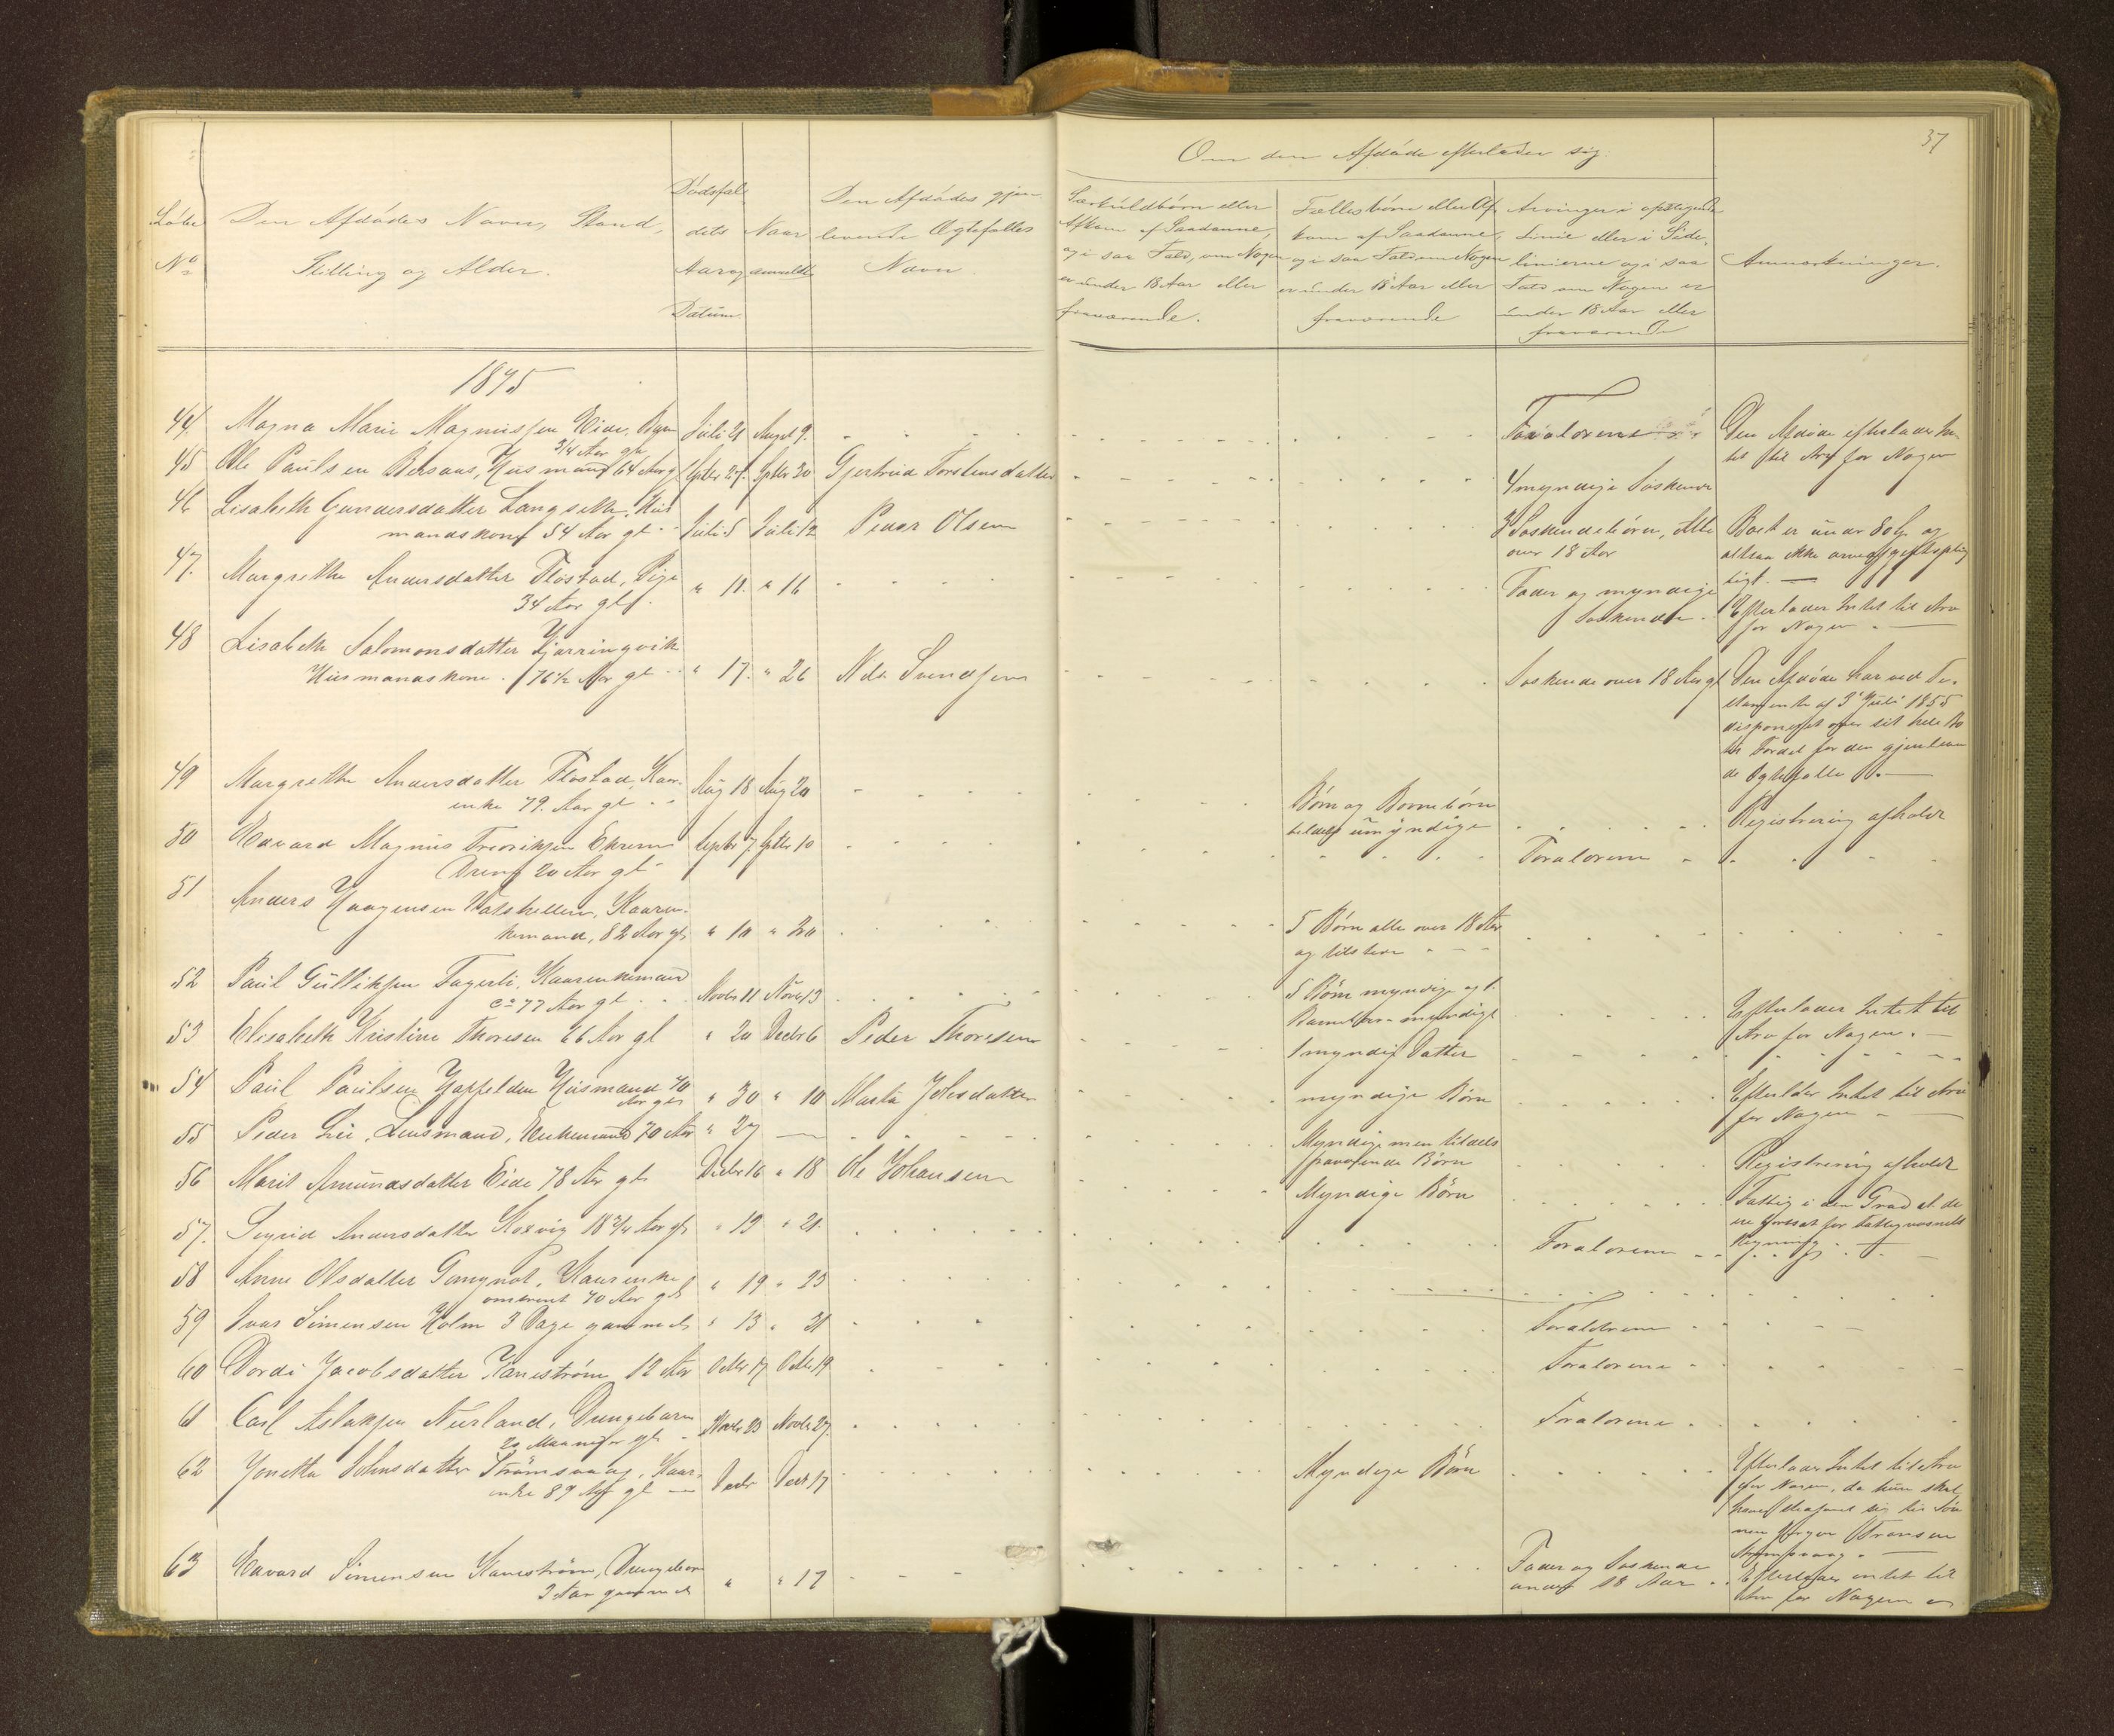 37
Om den Afdøde efterlader sig
Løbe
No
Den Afdødes Navn, Stand,
Stilling og Alder.
Dødsfal
dets
Aar og
Datum
Naar
anmeldt
Den Afdødes gjen
levende Ægtefælles
Navn
Særkuldbørn eller
Afkom af Saadanne,
og i saa Fald, om Nogen
er under 18 Aar eller
fraværende.
Fællesbørn eller Af
kom af Saadanne
og i saa Fald om Nogen
er under 18 Aar eller
fraværende
Arvinger i opstigende
Linie eller i Side,
linierne og i saa
Fald om Nogen er
under 18 Aar eller
fraværende
Anmærkninger.
1875
44 Magna Marie Magnussen Eide, Barn Juli 21 August 9. Forældrene Den Afdøde efterlader In
3/4 Aar gl. tet til Arv for Nogen
45 Ole Paulsen Bersaas, Husmand 64 Aar gl Septbr 27. Septbr 30 Gjertrud Torstensdatter 4 myndige Søskende
46 Lisabeth Gundersdatter Langseth, Hus
mandskone 54 Aar gl. Juli 5 Juli 12 Peder Olsen 3 Søskendebørn, Alle
over 18 Aar
Boet er under 80 og
altsaa ikke arveafgiftsplig
tigt.
47. Margrethe Andersdatter Flostad, Pige
34 Aar gl. " 11. " 16 Fader og myndige
Søskende. Efterlader Intet til Arv
for Nogen.
48 Lisabeth Salomonsdatter
Husmandskone. 76 1/2 Aar gl " 17. " 26 Nils Svendsen Søskende over 18 Aar gl Den Afdøde har ved Te.
stamente af 3 Juli 1855
disponeret over sit hele Bo
til Fordel for den gjenleven
de Ægtefælle.
49 Margrethe Andersdatter Flostad, Kaar-
enke 79. Aar gl Aug 18 Aug 20 Børn og Børnebørn
tildels umyndige Registrering afholdt
50 Edvard Magnus Fredriksen Ekrem Septbr 7 Septbr 10 Forældrene
Dreng 20 Aar gl
51 Anders Haagensen Vatshellen, Kaaren-
kemand, 82 Aar gl " 10 " 20 5 Børn alle over 18 Aar
og tilstede
52 Paul Gulliksen Fagerli, Kaarenkemand
ca 77 Aar gl. Novbr 11 Novbr 13 5 Børn myndige og 1
Barnebarn myndigt Efterlader Intet til
Arv for Nogen.
53 Elisabeth Kristine Thoresen 66 Aar gl " 20 Decbr 6 Peder Thoresen 1 myndig Datter
54 Paul Paulsen Husmand 70
Aar gl " 30 " 10 Marta Johsdatter myndige Børn Efterlader Intet til Arv
for Nogen
55 Peder Lie, Lensmand, Enkemand 70 Aar " 27 — Myndige men tildels
fraværende Børn Registrering afholdt
56 Marit Amundsdatter Eide 78 Aar gl. Decbr 16 " 18 Ole Johansen Myndige Børn Fattig i den Grad at de
for Fattigvæsnets
Regning.
57. Sigrid Andersdatter Koxvig 18 3/4 Aar gl " 19 " 21. Forældrene
58 Anne Olsdatter Kaarenke
omtrent 70 Aar gl " 19 " 23
59 Ivar Simensen Holm 3 Dage gammel " 13 " 31 Forældrene
60 Dordi Jacobsdatter Kanestrøm 12 Aar Octbr 17 Octbr 19 Forældrene
61 Carl Aslaksen Neerland, Drengebarn
20 Maaneder gl. Novbr 23 Novbr 27. Forældrene
62 Jonetta Johnsdatter Strømsvaag, Kaar-
enke 89 Aar gl Decbr Decbr 17 Myndige Børn Efterlader Intet til Arv
for Nogen, da hun skal
have sig til Søn
nen
Strømsvaag.
63 Edvard Simensen Kanestrøm, Drengebarn
3 Aar gammel " " 17 Fader og Søskende
under 18 Aar Efterlader intet til
Arv for Nogen